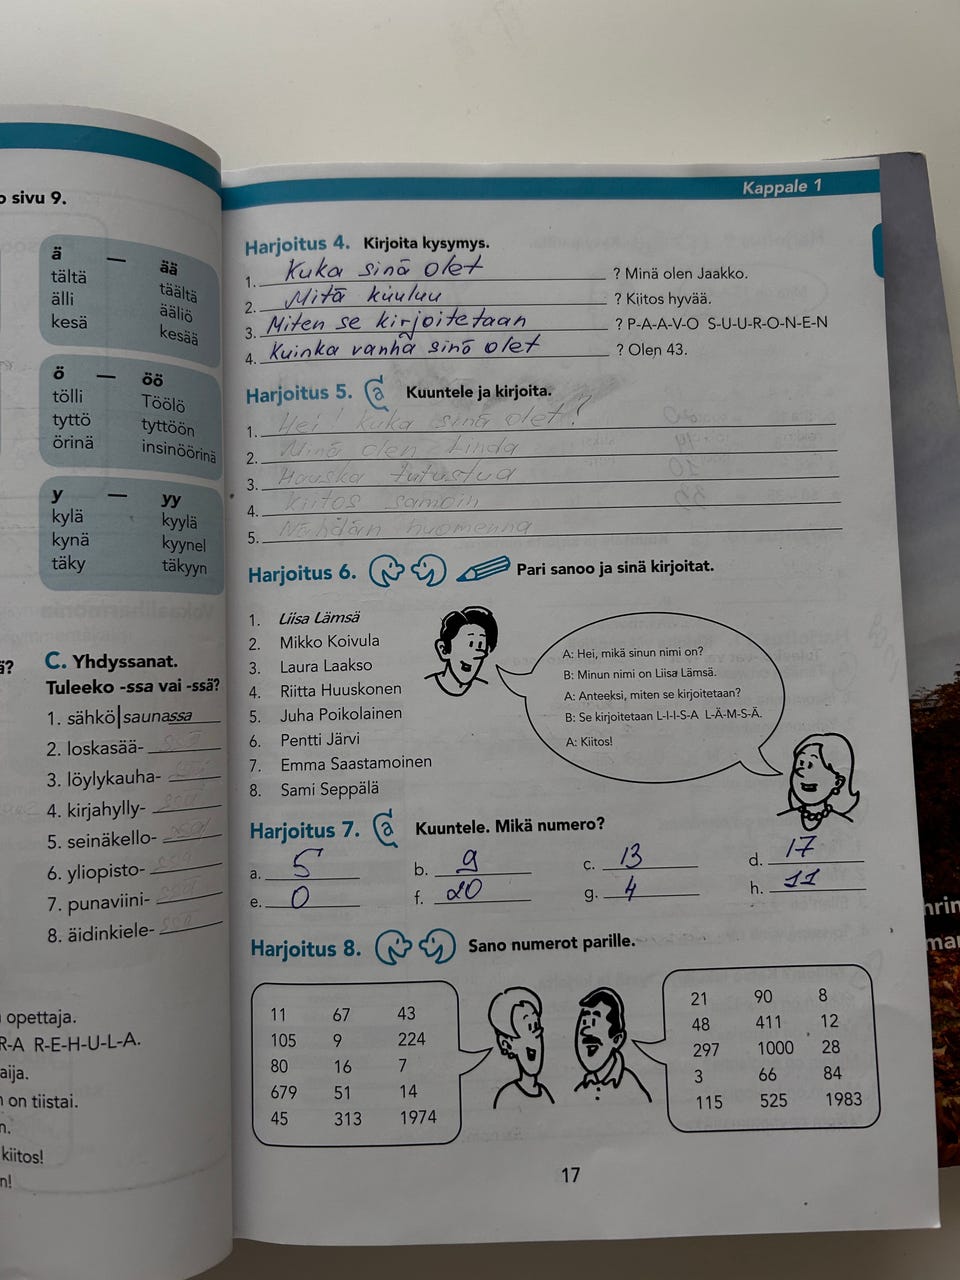 o sivu 9.
ä — ää
tältä täältä
älli ääliö
kesä kesää
ö — öö
tölli Töölö
tyttö tyttöön
örinä insinöörinä
y — yy
kylä kyylä
kynä kyynel
täky täkyyn
ä?
C. Yhdyssanat.
Tuleeko -ssa vai -ssä?
1. sähkö|saunassa
2. loskasää-
3. löylykauha-
4. kirjahylly-
5. seinäkello-
6. yliopisto-
7. punaviini-
8. äidinkiele-
opettaja.
R-A R-E-H-U-L-A.
aija.
on tiistai.
n.
kiitos!
n!
Kappale 1
Harjoitus 4. Kirjoita kysymys.
1. Kuka sinä olet ? Minä olen Jaakko.
2. Mitä kuuluu ? Kiitos hyvää.
3. Miten se kirjoitetaan ? P-A-A-V-O S-U-U-R-O-N-E-N
4. Kuinka vanha sinä olet ? Olen 43.
Harjoitus 5. Kuuntele ja kirjoita.
1. Hei! Kuka sinä olet?
2. Minä olen Linda
3. Hauska tutustua
4. Kiitos samoin
5. Nähdän huomenna
Harjoitus 6. Pari sanoo ja sinä kirjoitat.
1. Liisa Lämsä
2. Mikko Koivula
3. Laura Laakso
4. Riitta Huuskonen
5. Juha Poikolainen
6. Pentti Järvi
7. Emma Saastamoinen
8. Sami Seppälä
A: Hei, mikä sinun nimi on?
B: Minun nimi on Liisa Lämsä.
A: Anteeksi, miten se kirjoitetaan?
B: Se kirjoitetaan L-I-I-S-A L-Ä-M-S-Ä.
A: Kiitos!
Harjoitus 7. Kuuntele. Mikä numero?
a. 5 b. 9 c. 13 d. 17
e. 0 f. 20 g. 4 h. 11
Harjoitus 8. Sano numerot parille.
11 67 43
105 9 224
80 16 7
679 51 14
45 313 1974
21 90 8
48 411 12
297 1000 28
3 66 84
115 525 1983
17